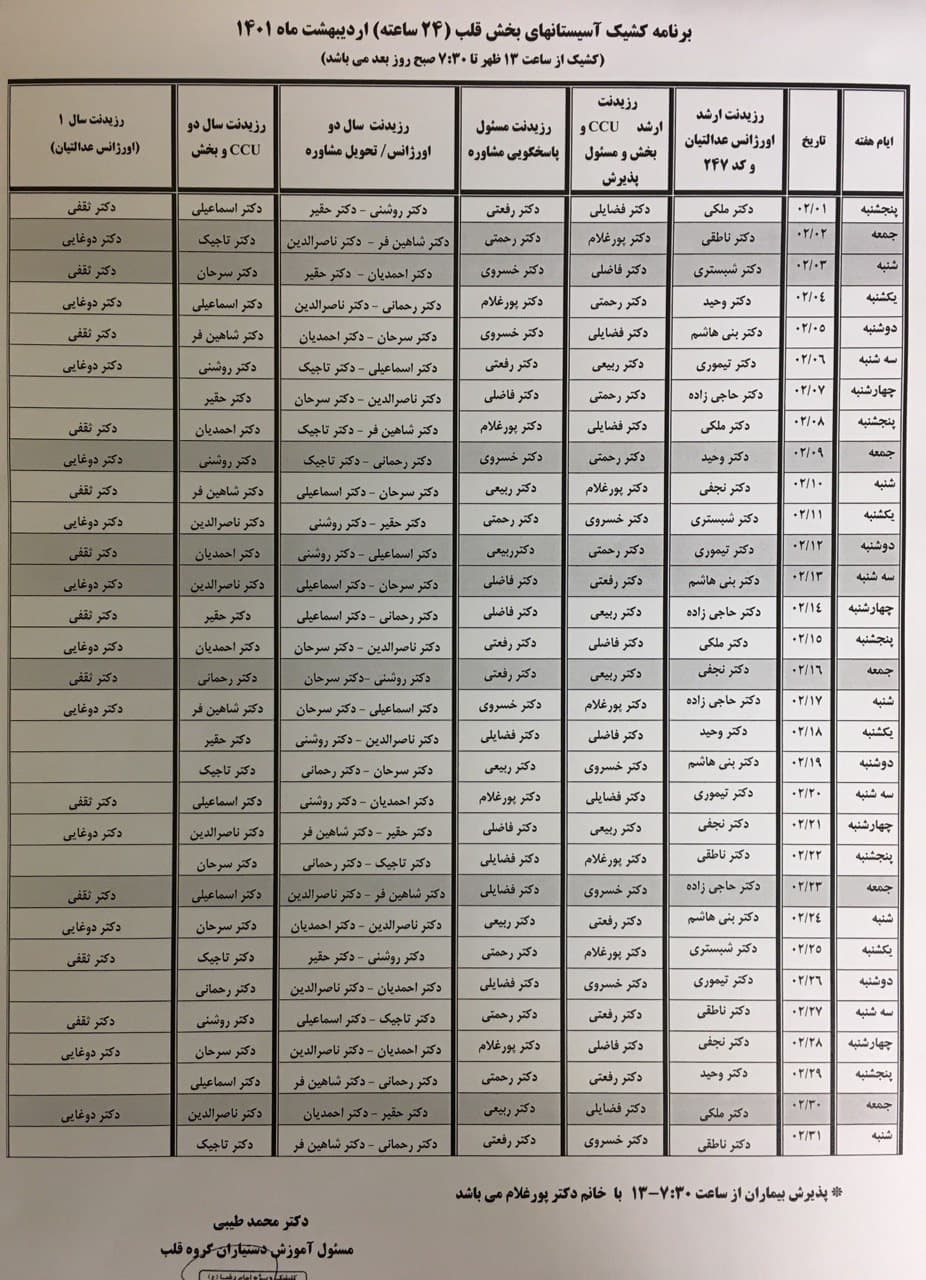 برنامه کشیک آسیستانهای بخش قلب (۲۴ ساعته) اردیبهشت ماه ۱۴۰۱
(کشیک از ساعت ۱۳ ظهر تا ۷:۳۰ صبح روز بعد می باشد)
ایام هفته | تاریخ | رزیدنت ارشد اورژانس عدالتیان و کد ۲۴۷ | رزیدنت ارشد CCU و بخش و مسئول پذیرش | رزیدنت مسئول پاسخگویی مشاوره | رزیدنت سال دو اورژانس/ تحویل مشاوره | رزیدنت سال دو CCU و بخش | رزیدنت سال ۱ (اورژانس عدالتیان)
پنجشنبه | ۰۲/۰۱ | دکتر ملکی | دکتر فضایلی | دکتر رفعتی | دکتر روشنی - دکتر حقیر | دکتر اسماعیلی | دکتر ثقفی
جمعه | ۰۲/۰۲ | دکتر ناطقی | دکتر پورغلام | دکتر رحمتی | دکتر شاهین فر - دکتر ناصرالدین | دکتر تاجیک | دکتر دوغایی
شنبه | ۰۲/۰۳ | دکتر شبستری | دکتر فاضلی | دکتر خسروی | دکتر احمدیان - دکتر حقیر | دکتر سرحان | دکتر ثقفی
یکشنبه | ۰۲/۰٤ | دکتر وحید | دکتر رحمتی | دکتر پورغلام | دکتر رحمانی - دکتر ناصرالدین | دکتر اسماعیلی | دکتر دوغایی
دوشنبه | ۰۲/۰٥ | دکتر بنی هاشم | دکتر فضایلی | دکتر خسروی | دکتر سرحان - دکتر احمدیان | دکتر شاهین فر | دکتر ثقفی
سه شنبه | ۰۲/۰٦ | دکتر تیموری | دکتر ربیعی | دکتر رفعتی | دکتر اسماعیلی - دکتر تاجیک | دکتر روشنی | دکتر دوغایی
چهارشنبه | ۰۲/۰۷ | دکتر حاجی زاده | دکتر رحمتی | دکتر فاضلی | دکتر ناصرالدین - دکتر سرحان | دکتر حقیر
پنجشنبه | ۰۲/۰۸ | دکتر ملکی | دکتر فضایلی | دکتر پورغلام | دکتر شاهین فر - دکتر تاجیک | دکتر احمدیان | دکتر ثقفی
جمعه | ۰۲/۰۹ | دکتر وحید | دکتر رحمتی | دکتر خسروی | دکتر رحمانی - دکتر تاجیک | دکتر روشنی | دکتر دوغایی
شنبه | ۰۲/۱۰ | دکتر نجفی | دکتر پورغلام | دکتر ربیعی | دکتر سرحان - دکتر اسماعیلی | دکتر شاهین فر | دکتر ثقفی
یکشنبه | ۰۲/۱۱ | دکتر شبستری | دکتر خسروی | دکتر رحمتی | دکتر حقیر - دکتر روشنی | دکتر ناصرالدین | دکتر دوغایی
دوشنبه | ۰۲/۱۲ | دکتر تیموری | دکتر رحمتی | دکترربیعی | دکتر اسماعیلی - دکتر روشنی | دکتر احمدیان | دکتر ثقفی
سه شنبه | ۰۲/۱۳ | دکتر بنی هاشم | دکتر رفعتی | دکتر فاضلی | دکتر سرحان - دکتر اسماعیلی | دکتر ناصرالدین | دکتر دوغایی
چهارشنبه | ۰۲/۱٤ | دکتر حاجی زاده | دکتر ربیعی | دکتر فاضلی | دکتر رحمانی - دکتر اسماعیلی | دکتر حقیر | دکتر ثقفی
پنجشنبه | ۰۲/۱٥ | دکتر ملکی | دکتر فاضلی | دکتر رفعتی | دکتر ناصرالدین - دکتر سرحان | دکتر احمدیان | دکتر دوغایی
جمعه | ۰۲/۱٦ | دکتر نجفی | دکتر ربیعی | دکتر رفعتی | دکتر روشنی -دکتر سرحان | دکتر رحمانی | دکتر ثقفی
شنبه | ۰۲/۱۷ | دکتر حاجی زاده | دکتر پورغلام | دکتر خسروی | دکتر اسماعیلی - دکتر سرحان | دکتر شاهین فر | دکتر دوغایی
یکشنبه | ۰۲/۱۸ | دکتر وحید | دکتر فاضلی | دکتر فضایلی | دکتر ناصرالدین - دکتر روشنی | دکتر حقیر
دوشنبه | ۰۲/۱۹ | دکتر بنی هاشم | دکتر خسروی | دکتر ربیعی | دکتر سرحان - دکتر رحمانی | دکتر تاجیک
سه شنبه | ۰۲/۲۰ | دکتر تیموری | دکتر فضایلی | دکتر پورغلام | دکتر احمدیان - دکتر روشنی | دکتر اسماعیلی | دکتر ثقفی
چهارشنبه | ۰۲/۲۱ | دکتر نجفی | دکتر ربیعی | دکتر فاضلی | دکتر حقیر - دکتر شاهین فر | دکتر ناصرالدین | دکتر دوغایی
پنجشنبه | ۰۲/۲۲ | دکتر ناطقی | دکتر پورغلام | دکتر فضایلی | دکتر تاجیک - دکتر رحمانی | دکتر سرحان
جمعه | ۰۲/۲۳ | دکتر حاجی زاده | دکتر خسروی | دکتر فضایلی | دکتر شاهین فر - دکتر ناصرالدین | دکتر اسماعیلی | دکتر ثقفی
شنبه | ۰۲/۲٤ | دکتر بنی هاشم | دکتر رفعتی | دکتر ربیعی | دکتر ناصرالدین - دکتر احمدیان | دکتر سرحان | دکتر دوغایی
یکشنبه | ۰۲/۲٥ | دکتر شبستری | دکتر پورغلام | دکتر رحمتی | دکتر روشنی - دکتر حقیر | دکتر تاجیک | دکتر ثقفی
دوشنبه | ۰۲/۲٦ | دکتر تیموری | دکتر خسروی | دکتر فضایلی | دکتر احمدیان - دکتر ناصرالدین | دکتر رحمانی
سه شنبه | ۰۲/۲۷ | دکتر ناطقی | دکتر رفعتی | دکتر رحمتی | دکتر تاجیک - دکتر اسماعیلی | دکتر روشنی | دکتر ثقفی
چهارشنبه | ۰۲/۲۸ | دکتر نجفی | دکتر فاضلی | دکتر پورغلام | دکتر احمدیان - دکتر ناصرالدین | دکتر سرحان | دکتر دوغایی
پنجشنبه | ۰۲/۲۹ | دکتر وحید | دکتر رفعتی | دکتر رحمتی | دکتر رحمانی - دکتر شاهین فر | دکتر اسماعیلی
جمعه | ۰۲/۳۰ | دکتر ملکی | دکتر فضایلی | دکتر ربیعی | دکتر حقیر - دکتر احمدیان | دکتر ناصرالدین | دکتر دوغایی
شنبه | ۰۲/۳۱ | دکتر ناطقی | دکتر خسروی | دکتر رفعتی | دکتر رحمانی - دکتر شاهین فر | دکتر تاجیک
* پذیرش بیماران از ساعت ۷:۳۰-۱۳ با خانم دکتر پورغلام می باشد
دکتر محمد طیبی
مسئول آموزش دستیاران گروه قلب